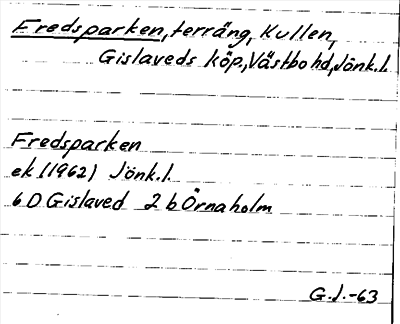 Fredsparken, terräng, Kullen,
Gislaveds köp., Västbo hd, Jönk.l.
Fredsparken
ek (1962) Jönk.l.
6 D Gislaved 2 b Örnaholm
G.J.-63